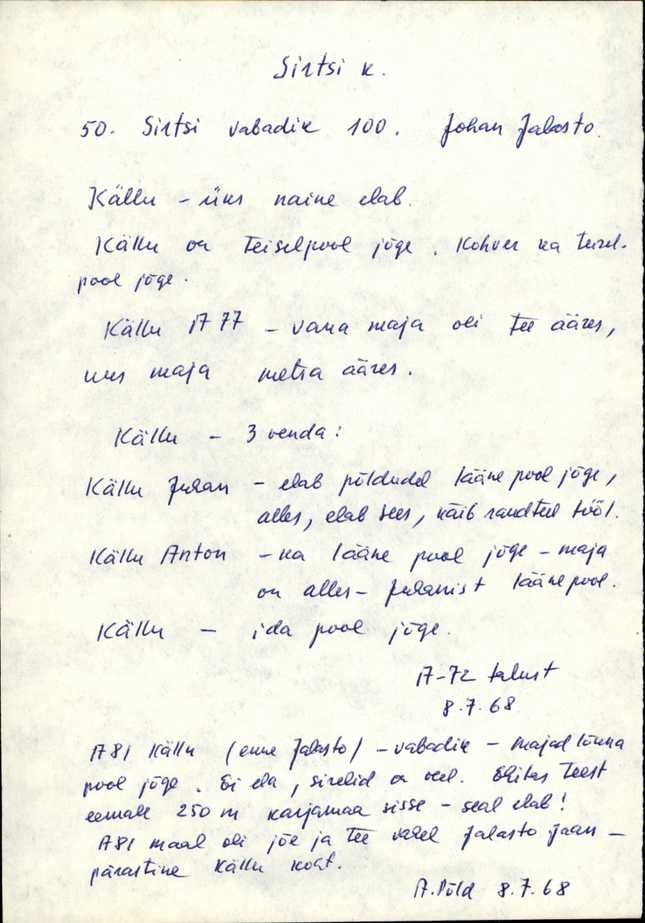 Sirtsi k.
50. Sirtsi vabadik 100. Johan Jalasto.
Källu – üks naine elab.
Källu on teiselpool jõge. Kohver ka teisel-
pool jõge.
Källu A 77 – vana maja oli tee ääres,
uus maja metsa ääres.
Källu – 3 venda:
Källu Juhan – elab põldudel lääne pool jõge,
alles, elab sees, käib raudteel tööl.
Källu Anton – ka lääne pool jõge – maja
on alles – Juhanist läänepool.
Källu – ida pool jõge.
A-72 talust
8.7.68
A81 Källu (enne Jalasto) – vabadik – majad lõuna
pool jõge. Ei ela, sirelid on veel. Ehitas teest
eemale 250 m karjamaa sisse – seal elab!
A81 maal oli jõe ja tee vahel Jalasto Jaan –
pärastine Källu koht.
A. Põld 8.7.68